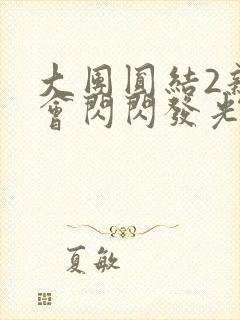 大團圓結2新
會閃閃發光
夏敏